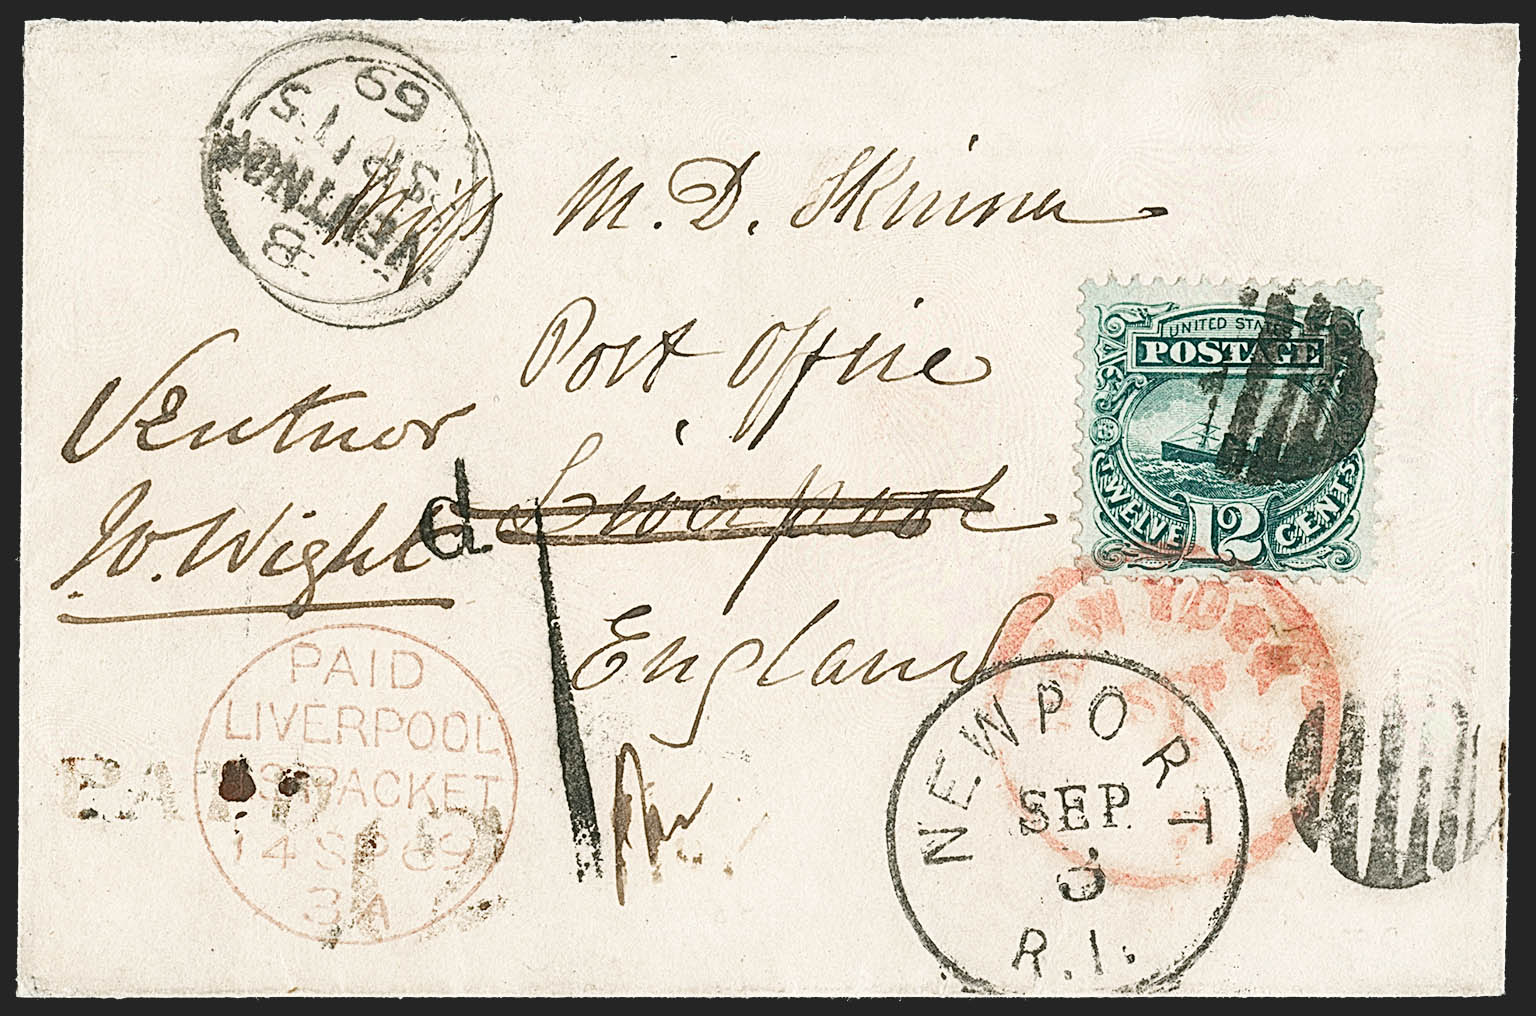 B
VENTNOR
SP 15
69
Miss M. D. Skinner
Post Office
Liverpool
England
Ventnor
W. Wight
d
1
UNITED STATES
POSTAGE
TWELVE 12 CENTS
NEW YORK
PAID
LIVERPOOL
US. PACKET
14 SP 69
3A
PAID
NEWPORT
SEP
3
R.I.